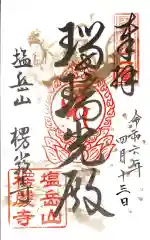 奉拝
令和六年
四月十三日
瑠璃光殿
塩岳山
楞厳寺
塩岳山
楞厳寺